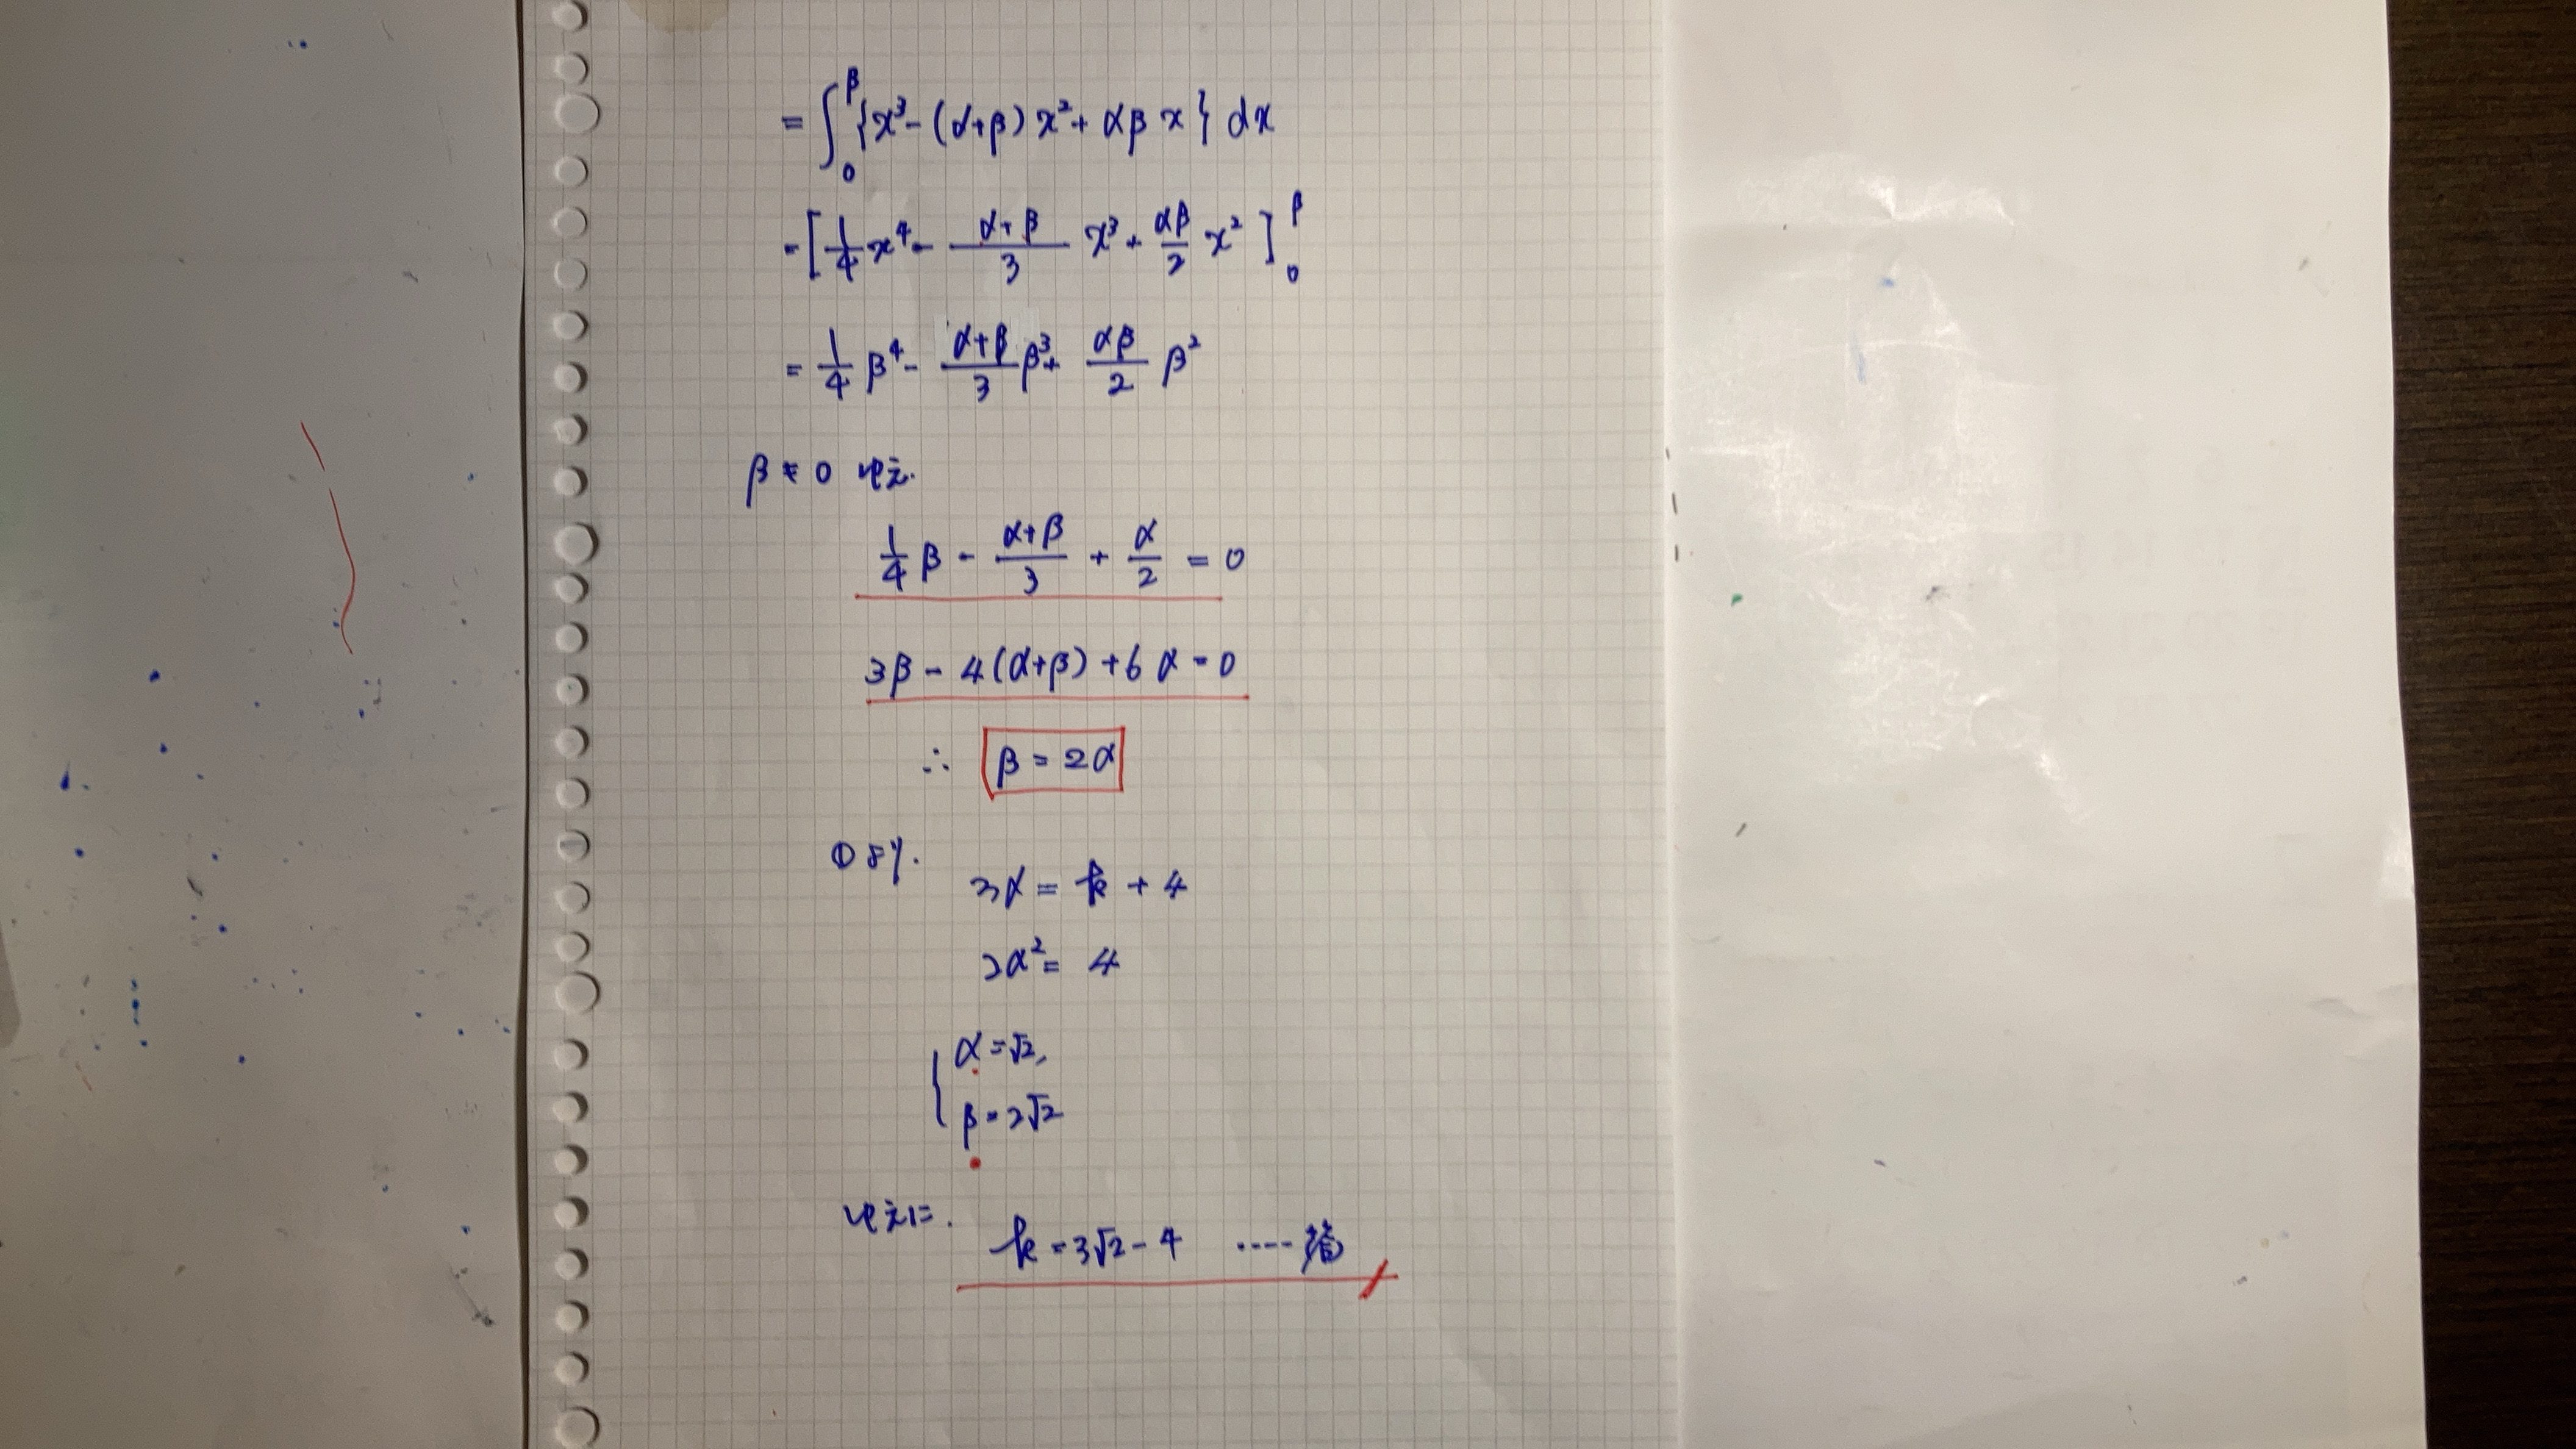 = ∫₀^β {x³ - (α+β)x² + αβx} dx
= [1/4 x⁴ - (α+β)/3 x³ + αβ/2 x²]₀^β
= 1/4 β⁴ - (α+β)/3 β³ + αβ/2 β²
β ≠ 0 ゆえ.
1/4 β - (α+β)/3 + α/2 = 0
3β - 4(α+β) + 6α = 0
∴ β = 2α
①より.
3α = k + 4
2α² = 4
{ α = √2,
β = 2√2
ゆえに.
k = 3√2 - 4 ····答